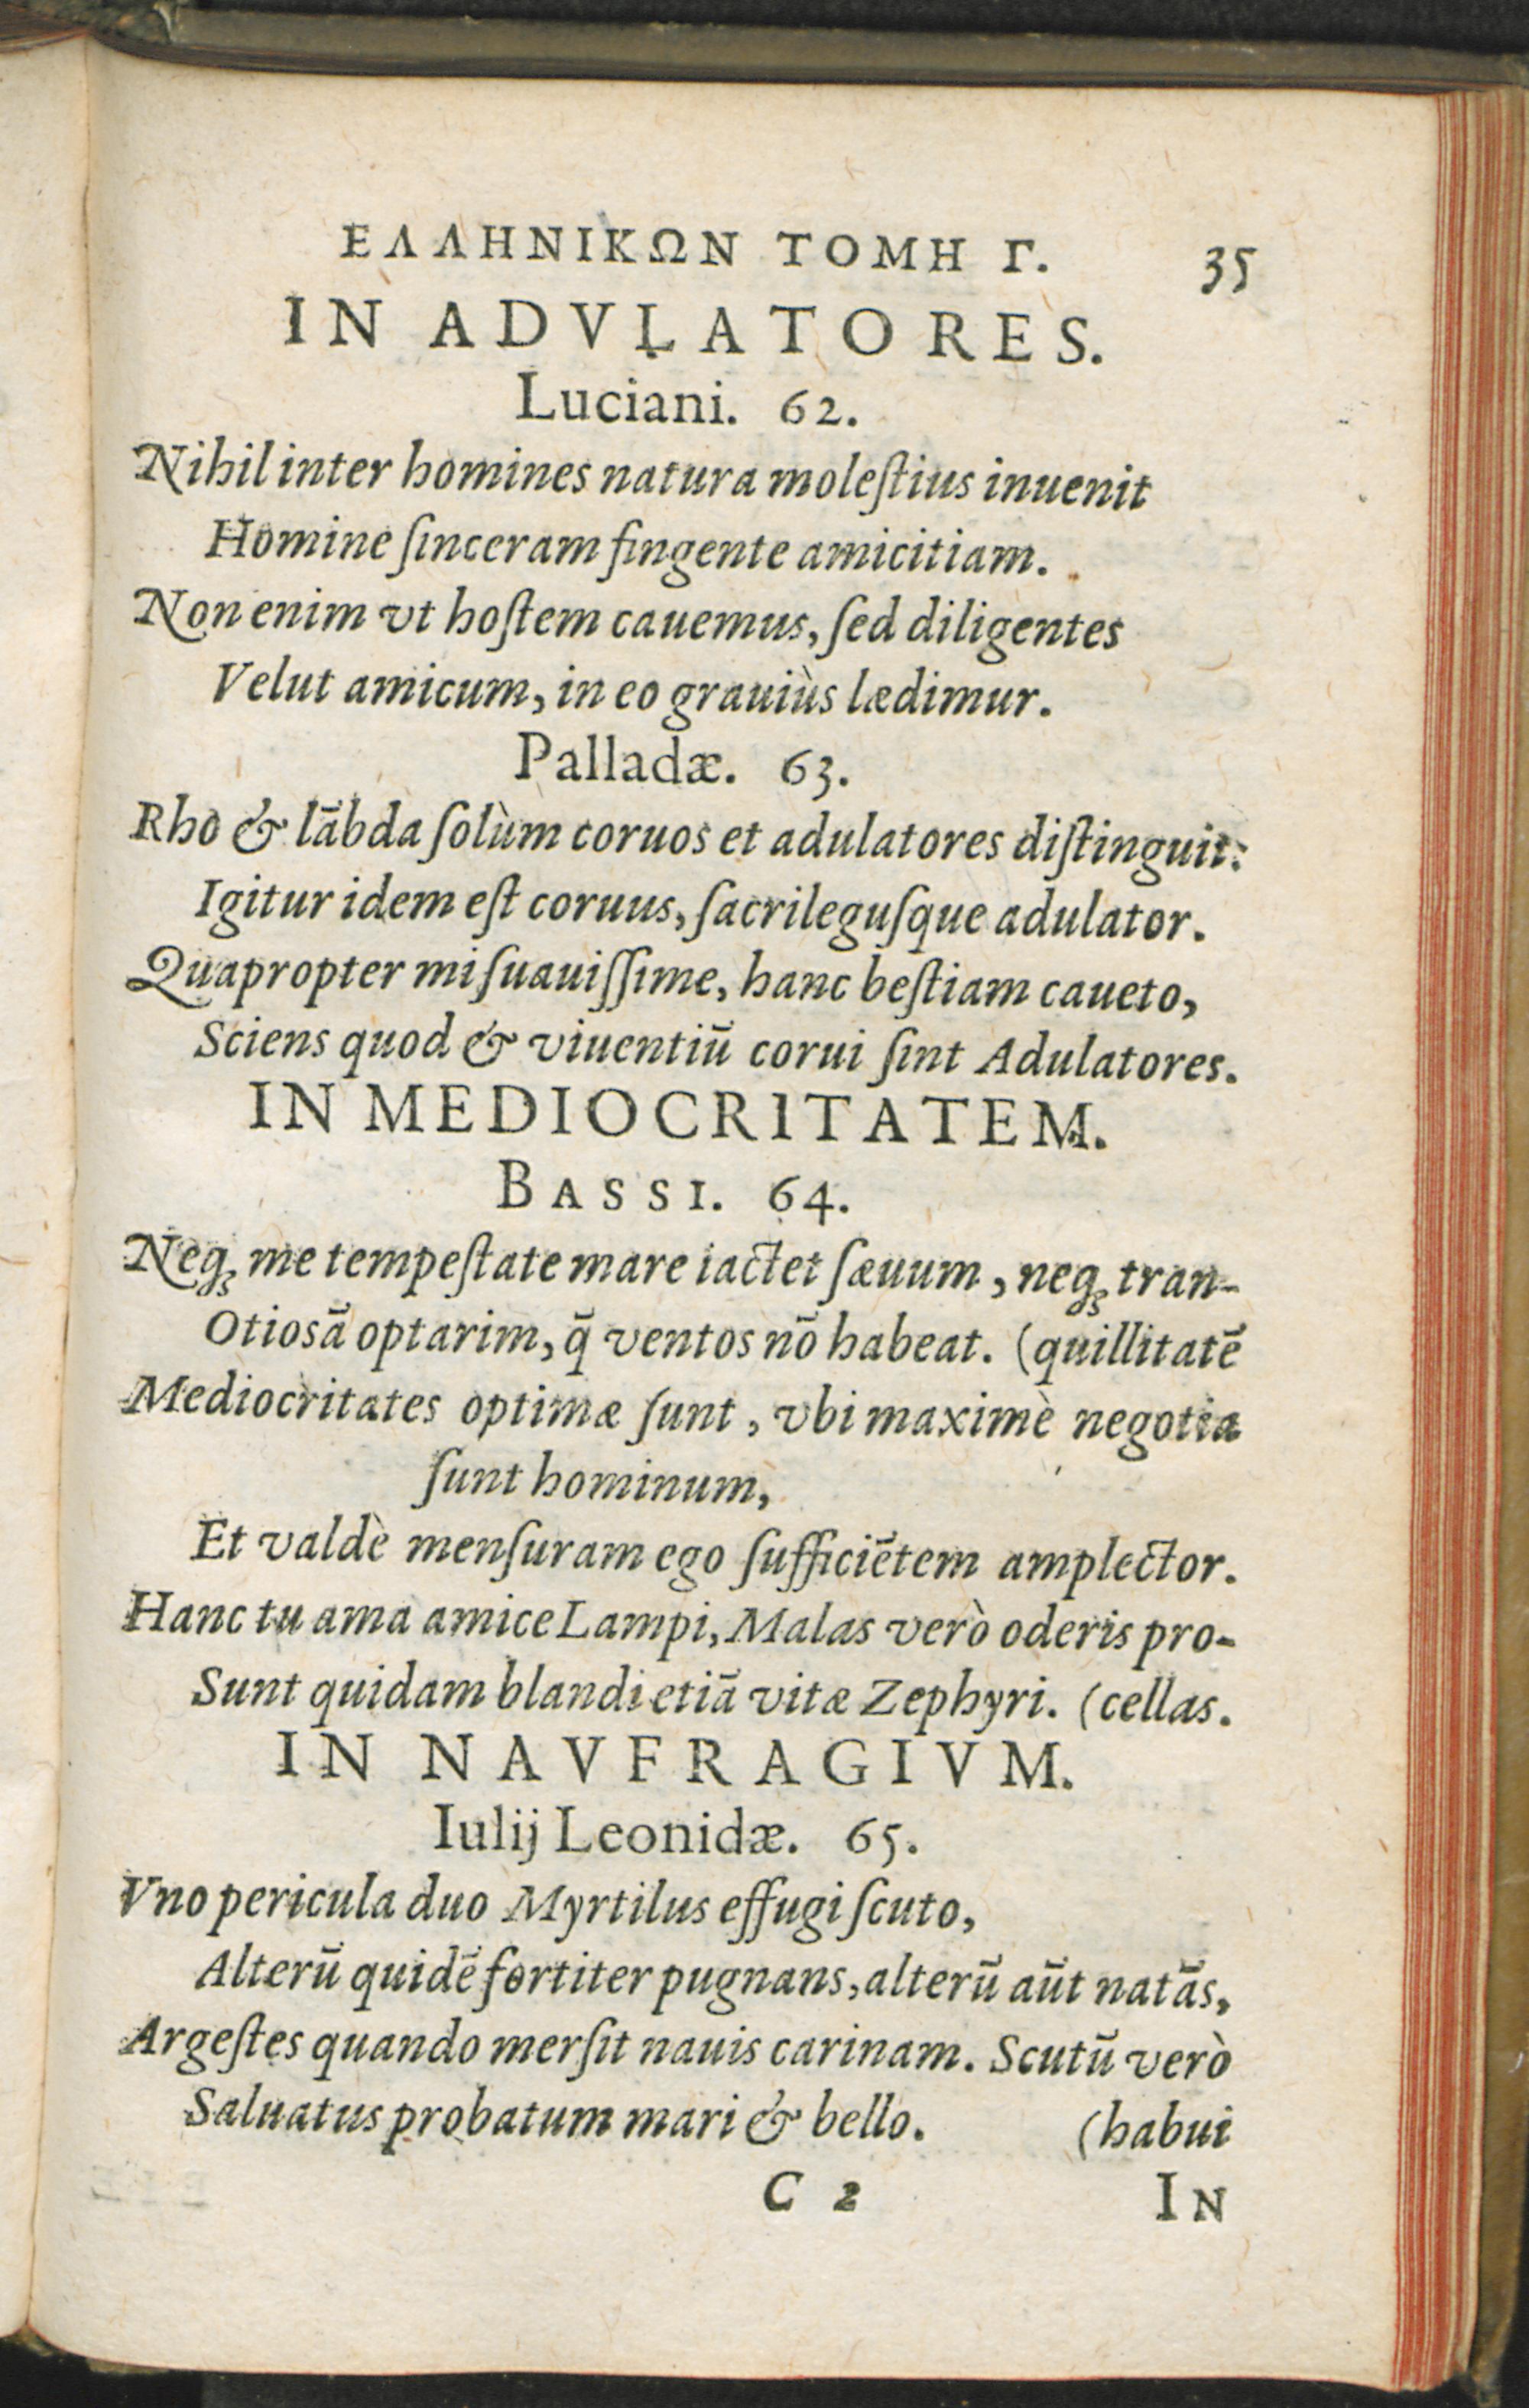 ΕΛΛΗΝΙΚΩΝ ΤΟΜΗ Γ. 35
IN ADVLATORES.
Luciani. 62.
Nihil inter homines natura moleſtius inuenit
Homine ſinceram fingente amicitiam.
Non enim vt hoſtem cauemus, ſed diligentes
Velut amicum, in eo grauiùs lædimur.
Palladæ. 63.
Rho & lābda ſolùm coruos et adulatores diſtinguit:
Igitur idem eſt coruus, ſacrileguſque adulator.
Quapropter mi ſuauiſſime, hanc beſtiam caueto,
Sciens quod & viuentiū corui ſint Adulatores.
IN MEDIOCRITATEM.
BASSI. 64.
Neqꝫ me tempeſtate mare iactet ſæuum, neqꝫ tran-
Otiosā optarim, q̄ ventos nō habeat. (quillitatē
Mediocritates optimæ ſunt, vbi maximè negotia
ſunt hominum,
Et valdè menſuram ego ſufficiētem amplector.
Hanc tu ama amice Lampi, Malas verò oderis pro-
Sunt quidam blandi etiā vitæ Zephyri. (cellas.
IN NAVFRAGIVM.
Iulij Leonidæ. 65.
Vno pericula duo Myrtilus effugi ſcuto,
Alterū quidē fortiter pugnans, alterū aūt natās,
Argeſtes quando merſit nauis carinam. Scutū verò
Saluatus probatum mari & bello. (habui
C 2 IN